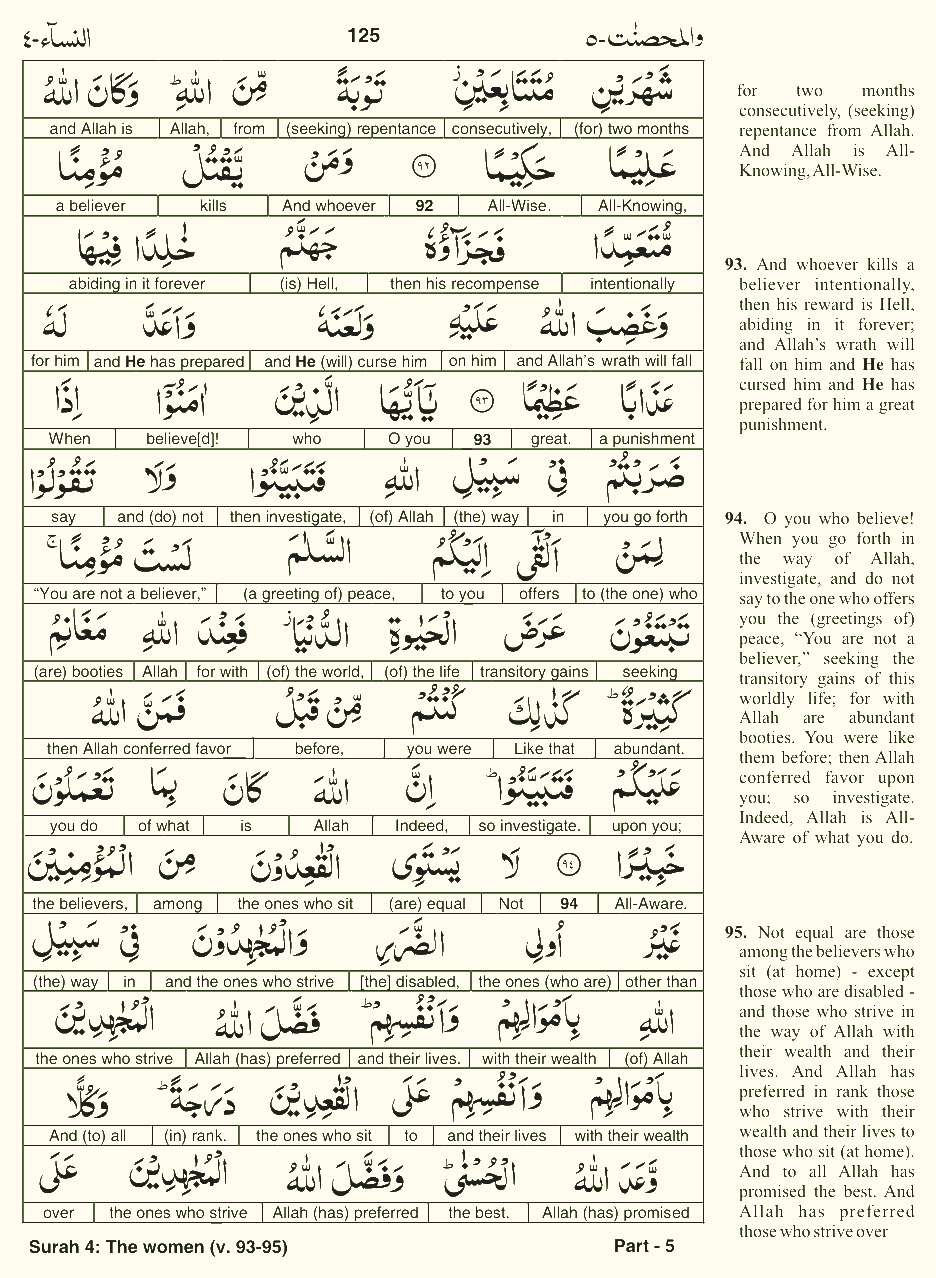 النساء-٤ 125 والمحصنت-٥
شَهْرَيْنِ مُتَتَابِعَيْنِ ز تَوْبَةً مِّنَ اللّٰهِ ط وَكَانَ اللّٰهُ
and Allah is | Allah, | from | (seeking) repentance | consecutively, | (for) two months
عَلِيْمًا حَكِيْمًا ٩٢ وَمَنْ يَّقْتُلْ مُؤْمِنًا
a believer | kills | And whoever | 92 | All-Wise. | All-Knowing,
مُّتَعَمِّدًا فَجَزَآؤُهٗ جَهَنَّمُ خٰلِدًا فِيْهَا
abiding in it forever | (is) Hell, | then his recompense | intentionally
وَغَضِبَ اللّٰهُ عَلَيْهِ وَلَعَنَهٗ وَاَعَدَّ لَهٗ
for him | and He has prepared | and He (will) curse him | on him | and Allah's wrath will fall
عَذَابًا عَظِيْمًا ٩٣ يٰٓاَيُّهَا الَّذِيْنَ اٰمَنُوْٓا اِذَا
When | believe[d]! | who | O you | 93 | great. | a punishment
ضَرَبْتُمْ فِيْ سَبِيْلِ اللّٰهِ فَتَبَيَّنُوْا وَلَا تَقُوْلُوْا
say | and (do) not | then investigate, | (of) Allah | (the) way | in | you go forth
لِمَنْ اَلْقٰٓى اِلَيْكُمُ السَّلٰمَ لَسْتَ مُؤْمِنًا ج
“You are not a believer,” | (a greeting of) peace, | to you | offers | to (the one) who
تَبْتَغُوْنَ عَرَضَ الْحَيٰوةِ الدُّنْيَا ز فَعِنْدَ اللّٰهِ مَغَانِمُ
(are) booties | Allah | for with | (of) the world, | (of) the life | transitory gains | seeking
كَثِيْرَةٌ ط كَذٰلِكَ كُنْتُمْ مِّنْ قَبْلُ فَمَنَّ اللّٰهُ
then Allah conferred favor | before, | you were | Like that | abundant.
عَلَيْكُمْ فَتَبَيَّنُوْا ط اِنَّ اللّٰهَ كَانَ بِمَا تَعْمَلُوْنَ
you do | of what | is | Allah | Indeed, | so investigate. | upon you;
خَبِيْرًا ٩٤ لَا يَسْتَوِى الْقٰعِدُوْنَ مِنَ الْمُؤْمِنِيْنَ
the believers, | among | the ones who sit | (are) equal | Not | 94 | All-Aware.
غَيْرُ اُولِى الضَّرَرِ وَالْمُجٰهِدُوْنَ فِيْ سَبِيْلِ
(the) way | in | and the ones who strive | [the] disabled, | the ones (who are) | other than
اللّٰهِ بِاَمْوَالِهِمْ وَاَنْفُسِهِمْ ط فَضَّلَ اللّٰهُ الْمُجٰهِدِيْنَ
the ones who strive | Allah (has) preferred | and their lives. | with their wealth | (of) Allah
بِاَمْوَالِهِمْ وَاَنْفُسِهِمْ عَلَى الْقٰعِدِيْنَ دَرَجَةً ط وَكُلًّا
And (to) all | (in) rank. | the ones who sit | to | and their lives | with their wealth
وَّعَدَ اللّٰهُ الْحُسْنٰى ط وَفَضَّلَ اللّٰهُ الْمُجٰهِدِيْنَ عَلَى
over | the ones who strive | Allah (has) preferred | the best. | Allah (has) promised
Surah 4: The women (v. 93-95) Part - 5
for two months
consecutively, (seeking)
repentance from Allah.
And Allah is All-
Knowing, All-Wise.
93. And whoever kills a
believer intentionally,
then his reward is Hell,
abiding in it forever;
and Allah's wrath will
fall on him and He has
cursed him and He has
prepared for him a great
punishment.
94. O you who believe!
When you go forth in
the way of Allah,
investigate, and do not
say to the one who offers
you the (greetings of)
peace, “You are not a
believer,” seeking the
transitory gains of this
worldly life; for with
Allah are abundant
booties. You were like
them before; then Allah
conferred favor upon
you; so investigate.
Indeed, Allah is All-
Aware of what you do.
95. Not equal are those
among the believers who
sit (at home) - except
those who are disabled -
and those who strive in
the way of Allah with
their wealth and their
lives. And Allah has
preferred in rank those
who strive with their
wealth and their lives to
those who sit (at home).
And to all Allah has
promised the best. And
Allah has preferred
those who strive over